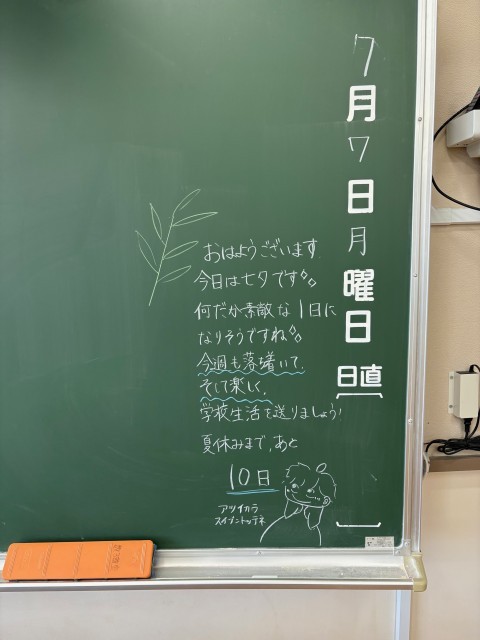 7月7日月曜日
日直
おはようございます
今日は七夕です。
何だか素敵な1日に
なりそうですね。
今週も落ち着いて、
そして楽しく、
学校生活を送りましょう!
夏休みまで、あと
10日
アツイカラ
スイブントッテネ